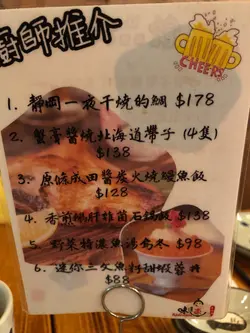 廚師推介
CHEERS
1. 靜岡一夜干燒的鯛 $178
2. 蟹膏醬燒北海道帶子 (4隻)
$138
3. 原條成田醬炭火燒鰻魚飯
$128
4. 香煎鵝肝雜菌石鍋飯 $138
5. 野菜特濃魚湯烏冬 $98
6. 迷你三文魚刺甜蝦蓉丼
$88